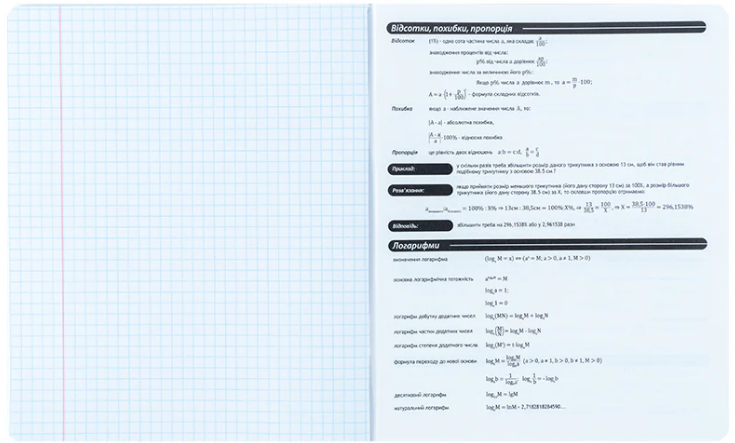 Відсотки, похибки, пропорція
Відсоток (1%) - одна сота частина числа a, яка складає a/100;
знаходження процентів від числа:
p% від числа a дорівнює ap/100;
знаходження числа за величиною його p%:
Якщо p% числа a дорівнює m, то a = m/p ·100;
A = a·(1+ p/100)ᵗ - формула складних відсотків.
Похибка якщо a - наближене значення числа A, то:
|A - a| - абсолютна похибка,
|A - a / a|·100% - відносна похибка
Пропорція це рівність двох відношень a:b = c:d, a/b = c/d
Приклад: у скільки разів треба збільшити розмір даного трикутника з основою 13 см, щоб він став рівним
подібному трикутнику з основою 38.5 см ?
Розв'язання: якщо прийняти розмір меншого трикутника (його дану сторону 13 см) за 100%, а розмір більшого
трикутника (його дану сторону 38.5 см) за X, то склавши пропорцію отримаємо:
= 100% : X% ⇒ 13см : 38,5см = 100%:X%, ⇒ 13/38,5 = 100/X , ⇒ X = 38,5·100/13 = 296,1538%
Відповідь: збільшити треба на 296,1538% або у 2,961538 рази
Логарифми
визначення логарифма (logₐM = x) ⇔ (aˣ = M; a > 0, a ≠ 1, M > 0)
основна логарифмічна тотожність a^logₐM = M
logₐa = 1;
logₐ1 = 0
логарифм добутку додатних чисел logₐ(MN) = logₐM + logₐN
логарифм частки додатних чисел logₐ(M/N) = logₐM - logₐN
логарифм степеня додатного числа logₐ(Mᵗ) = t·logₐM
формула переходу до нової основи logₐM = log_bM/log_ba (a > 0, a ≠ 1, b > 0, b ≠ 1, M > 0)
logₐb = 1/log_ba; logₐ1/b = - logₐb
десятковий логарифм log₁₀M = lgM
натуральний логарифм logₑM = lnM - 2,7182818284590...